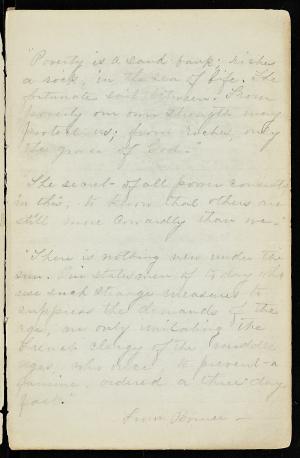 "Poverty is a sand bank, riches
a rock, in the sea of life. The
fortunate sail between. From
poverty our own strength may
protect us; from riches, only
the grace of God."
"The secret of all power consists
in this, to know that others are
still more cowardly than we."
"There is nothing new under the
sun. Our statesmen of to day who
use such strange measures to
suppress the demands of the
age, are only imitating the
French clergy of the middle
ages, who once, to prevent a
famine, ordered a three day
fast."
From Börne —